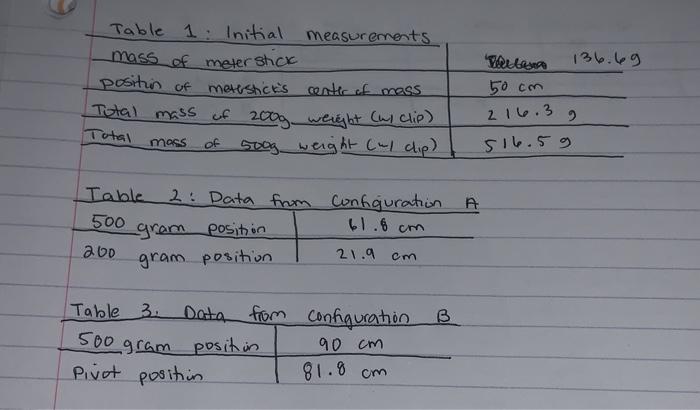 Table 1: Initial measurements
mass of meterstick 136.6g
position of meterstick's center of mass 50 cm
Total mass of 200g weight (w/ clip) 216.3 g
Total mass of 500g weight (w/ clip) 516.5 g
Table 2: Data from configuration A
500 gram position 61.8 cm
200 gram position 21.9 cm
Table 3. Data from configuration B
500 gram position 90 cm
Pivot position 81.8 cm